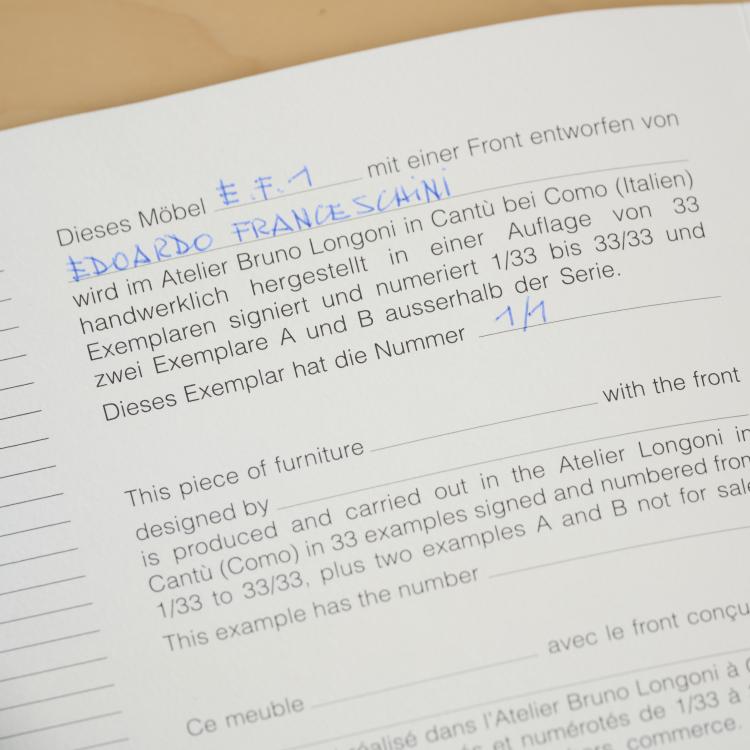 Dieses Möbel E.F.1 mit einer Front entworfen von
EDOARDO FRANCESCHINI
wird im Atelier Bruno Longoni in Cantù bei Como (Italien)
handwerklich hergestellt in einer Auflage von 33
Exemplaren signiert und numeriert 1/33 bis 33/33 und
zwei Exemplare A und B ausserhalb der Serie.
Dieses Exemplar hat die Nummer 1/1
This piece of furniture with the front
designed by
is produced and carried out in the Atelier Longoni in
Cantù (Como) in 33 examples signed and numbered from
1/33 to 33/33, plus two examples A and B not for sale
This example has the number
Ce meuble avec le front conçu
réalisé dans l'Atelier Bruno Longoni à
et numérotés de 1/33 à
commerce.